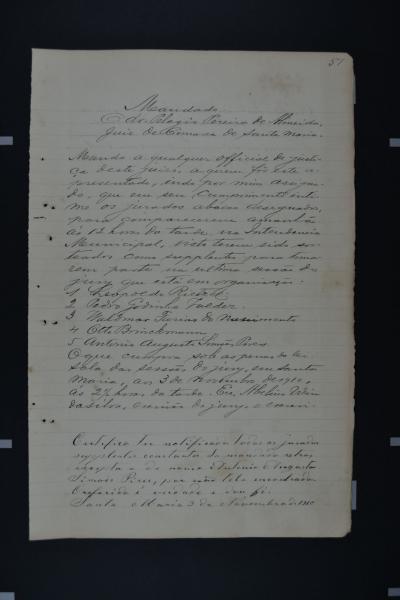 51
Mandado
Pelagio Pereira de Almeida,
Juiz de Comarca de Santa Maria.
Mando a qualquer official de justi-
ça deste juizo, a quem fôr este a-
presentado, indo por mim assigna-
do, que em seu cumprimento inti-
me os jurados abaixo designados,
para comparecerem amanhã
ás 12 horas da tarde, na Intendencia
Municipal, visto terem sido sor-
teados como supplentes para toma-
rem parte na ultima sessão do
jury que está em organisação:
1 Leopoldo
2 Pedro Godinho Valdez
3 Waldemar do Nascimento
4 Otto Brinckmann
5 Antonio Augusto Simões Pires
O que cumpra sob as penas da lei
Sala das sessões do jury, em Santa
Maria, aos 3 de Novembro de 1910,
ás 2½ horas da tarde. Eu, Abelino Vieira
da Silva, escrivão do jury, o escrevi
Certifico ter notificado todos os jurados
supplentes constantes do mandado retro,
excepto o de nome Antonio Augusto
Simões Pires, por não tel-o encontrado.
O referido é verdade e dou fé.
Santa Maria 3 de Novembro de 1910